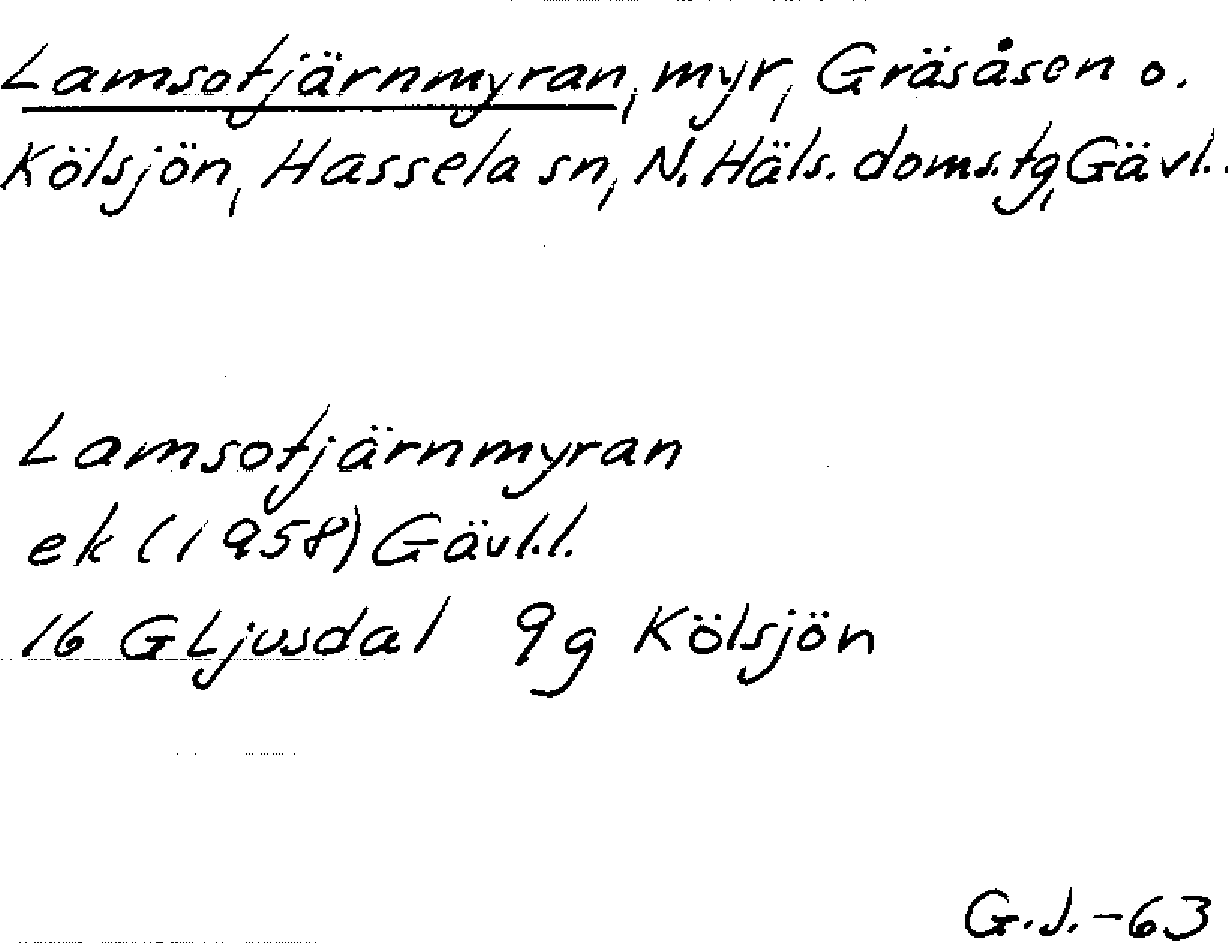 Lamsotjärnmyran, myr, Gräsåsen o.
Kölsjön, Hassela sn, N. Häls. doms.tg, Gävl..
Lamsotjärnmyran
ek (1958) Gävl.l.
16 G Ljusdal 9g Kölsjön
G.J.-63